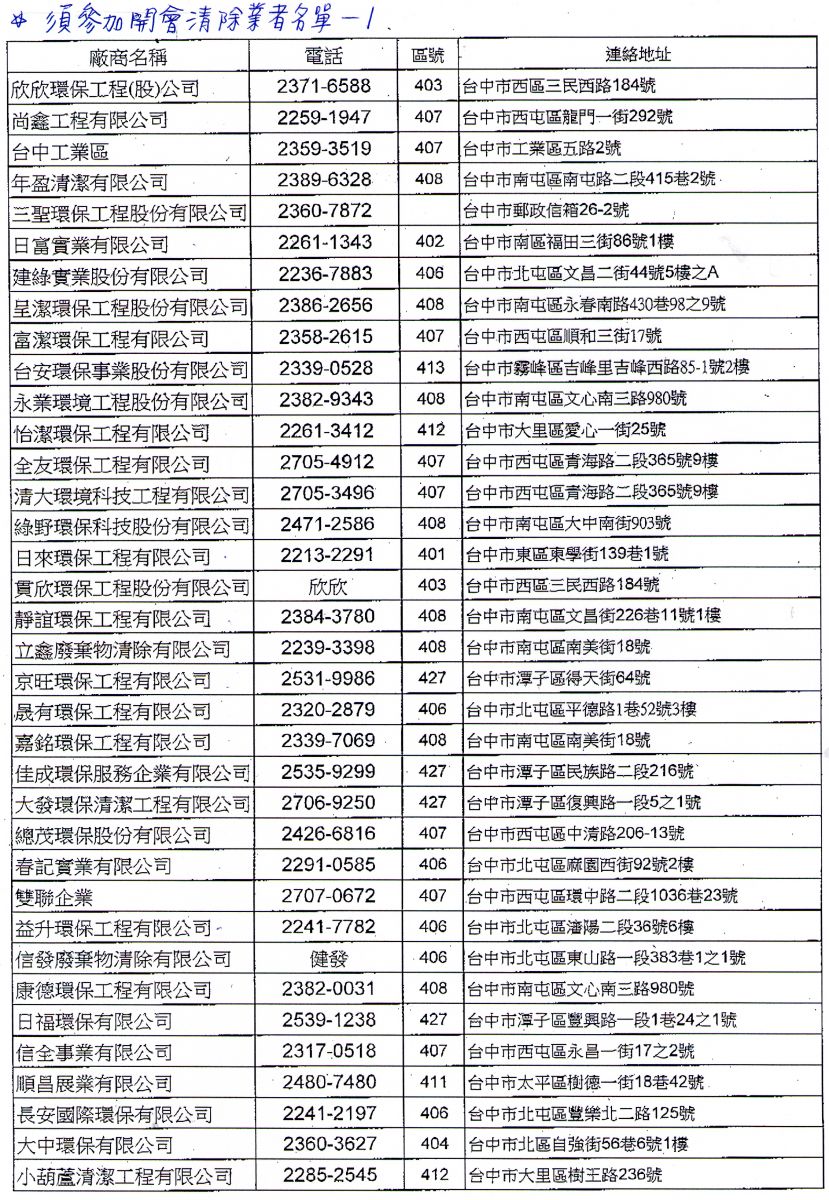 * 須參加開會清除業者名單-1
廠商名稱 電話 區號 連絡地址
欣欣環保工程(股)公司 2371-6588 403 台中市西區三民西路184號
尚鑫工程有限公司 2259-1947 407 台中市西屯區龍門一街292號
台中工業區 2359-3519 407 台中市工業區五路2號
年盈清潔有限公司 2389-6328 408 台中市南屯區南屯路二段415巷2號
三聖環保工程股份有限公司 2360-7872 台中市郵政信箱26-2號
日富實業有限公司 2261-1343 402 台中市南區福田三街86號1樓
建綠實業股份有限公司 2236-7883 406 台中市北屯區文昌二街44號5樓之A
呈潔環保工程股份有限公司 2386-2656 408 台中市南屯區永春南路430巷98之9號
富潔環保工程有限公司 2358-2615 407 台中市西屯區順和三街17號
台安環保事業股份有限公司 2339-0528 413 台中市霧峰區吉峰里吉峰西路85-1號2樓
永業環境工程股份有限公司 2382-9343 408 台中市南屯區文心南三路980號
怡潔環保工程有限公司 2261-3412 412 台中市大里區愛心一街25號
全友環保工程有限公司 2705-4912 407 台中市西屯區青海路二段365號9樓
清大環境科技工程有限公司 2705-3496 407 台中市西屯區青海路二段365號9樓
綠野環保科技股份有限公司 2471-2586 408 台中市南屯區大中南街903號
日來環保工程有限公司 2213-2291 401 台中市東區東學街139巷1號
貫欣環保工程股份有限公司 欣欣 403 台中市西區三民西路184號
靜誼環保工程有限公司 2384-3780 408 台中市南屯區文昌街226巷11號1樓
立鑫廢棄物清除有限公司 2239-3398 408 台中市南屯區南美街18號
京旺環保工程有限公司 2531-9986 427 台中市潭子區得天街64號
晟有環保工程有限公司 2320-2879 406 台中市北屯區平德路1巷52號3樓
嘉銘環保工程有限公司 2339-7069 408 台中市南屯區南美街18號
佳成環保服務企業有限公司 2535-9299 427 台中市潭子區民族路二段216號
大發環保清潔工程有限公司 2706-9250 427 台中市潭子區復興路一段5之1號
總茂環保股份有限公司 2426-6816 407 台中市西屯區中清路206-13號
春記實業有限公司 2291-0585 406 台中市北屯區麻園西街92號2樓
雙聯企業 2707-0672 407 台中市西屯區環中路二段1036巷23號
益升環保工程有限公司 2241-7782 406 台中市北屯區瀋陽二段36號6樓
信發廢棄物清除有限公司 健發 406 台中市北屯區東山路一段383巷1之1號
康德環保工程有限公司 2382-0031 408 台中市南屯區文心南三路980號
日福環保有限公司 2539-1238 427 台中市潭子區豐興路一段1巷24之1號
信全事業有限公司 2317-0518 407 台中市西屯區永昌一街17之2號
順昌展業有限公司 2480-7480 411 台中市太平區樹德一街18巷42號
長安國際環保有限公司 2241-2197 406 台中市北屯區豐樂北二路125號
大中環保有限公司 2360-3627 404 台中市北區自強街56巷6號1樓
小葫蘆清潔工程有限公司 2285-2545 412 台中市大里區樹王路236號